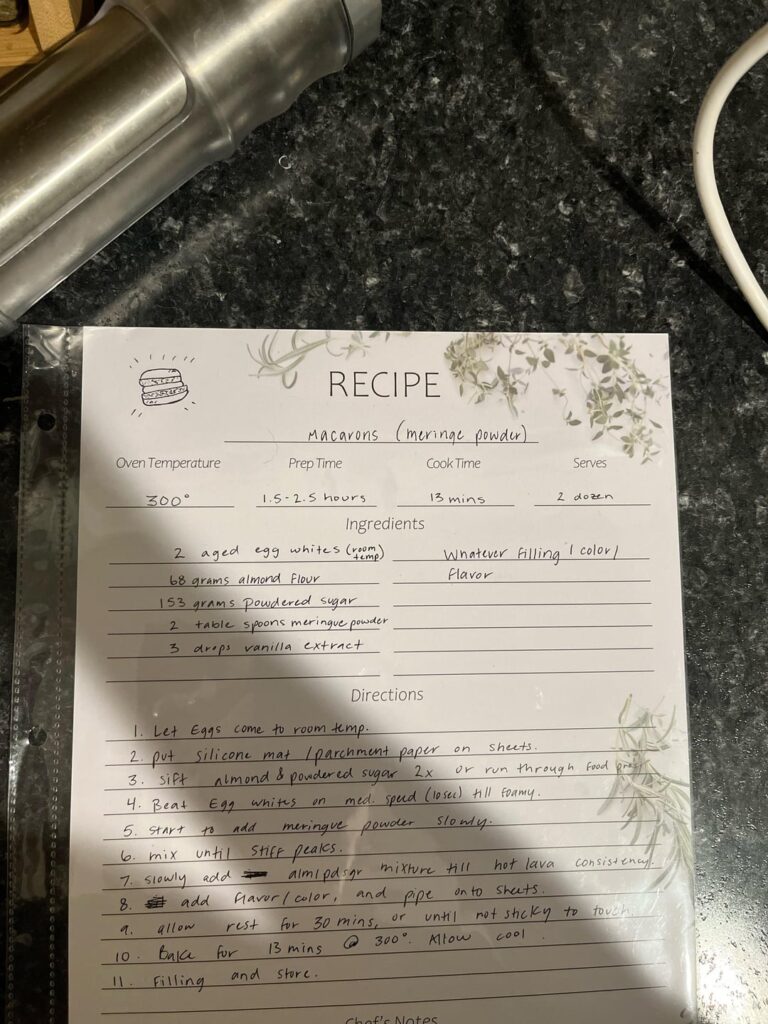 RECIPE
Macarons (meringe powder)
Oven Temperature Prep Time Cook Time Serves
300° 1.5-2.5 hours 13 mins 2 dozen
Ingredients
2 aged egg whites (room temp) Whatever filling / color/
68 grams almond flour flavor
153 grams powdered sugar
2 table spoons meringue powder
3 drops vanilla extract
Directions
1. Let Eggs come to room temp.
2. put silicone mat / parchment paper on sheets.
3. Sift almond & powdered sugar 2x or run through food
4. Beat Egg whites on med. speed (10sec) till foamy.
5. start to add meringue powder slowly.
6. mix until stiff peaks.
7. slowly add alm/pdsgr mixture till hot lava consistency.
8. add flavor/color, and pipe onto sheets.
9. allow rest for 30 mins, or until not sticky to touch.
10. Bake for 13 mins @ 300°. Allow cool.
11. Filling and store.
Chef's Notes